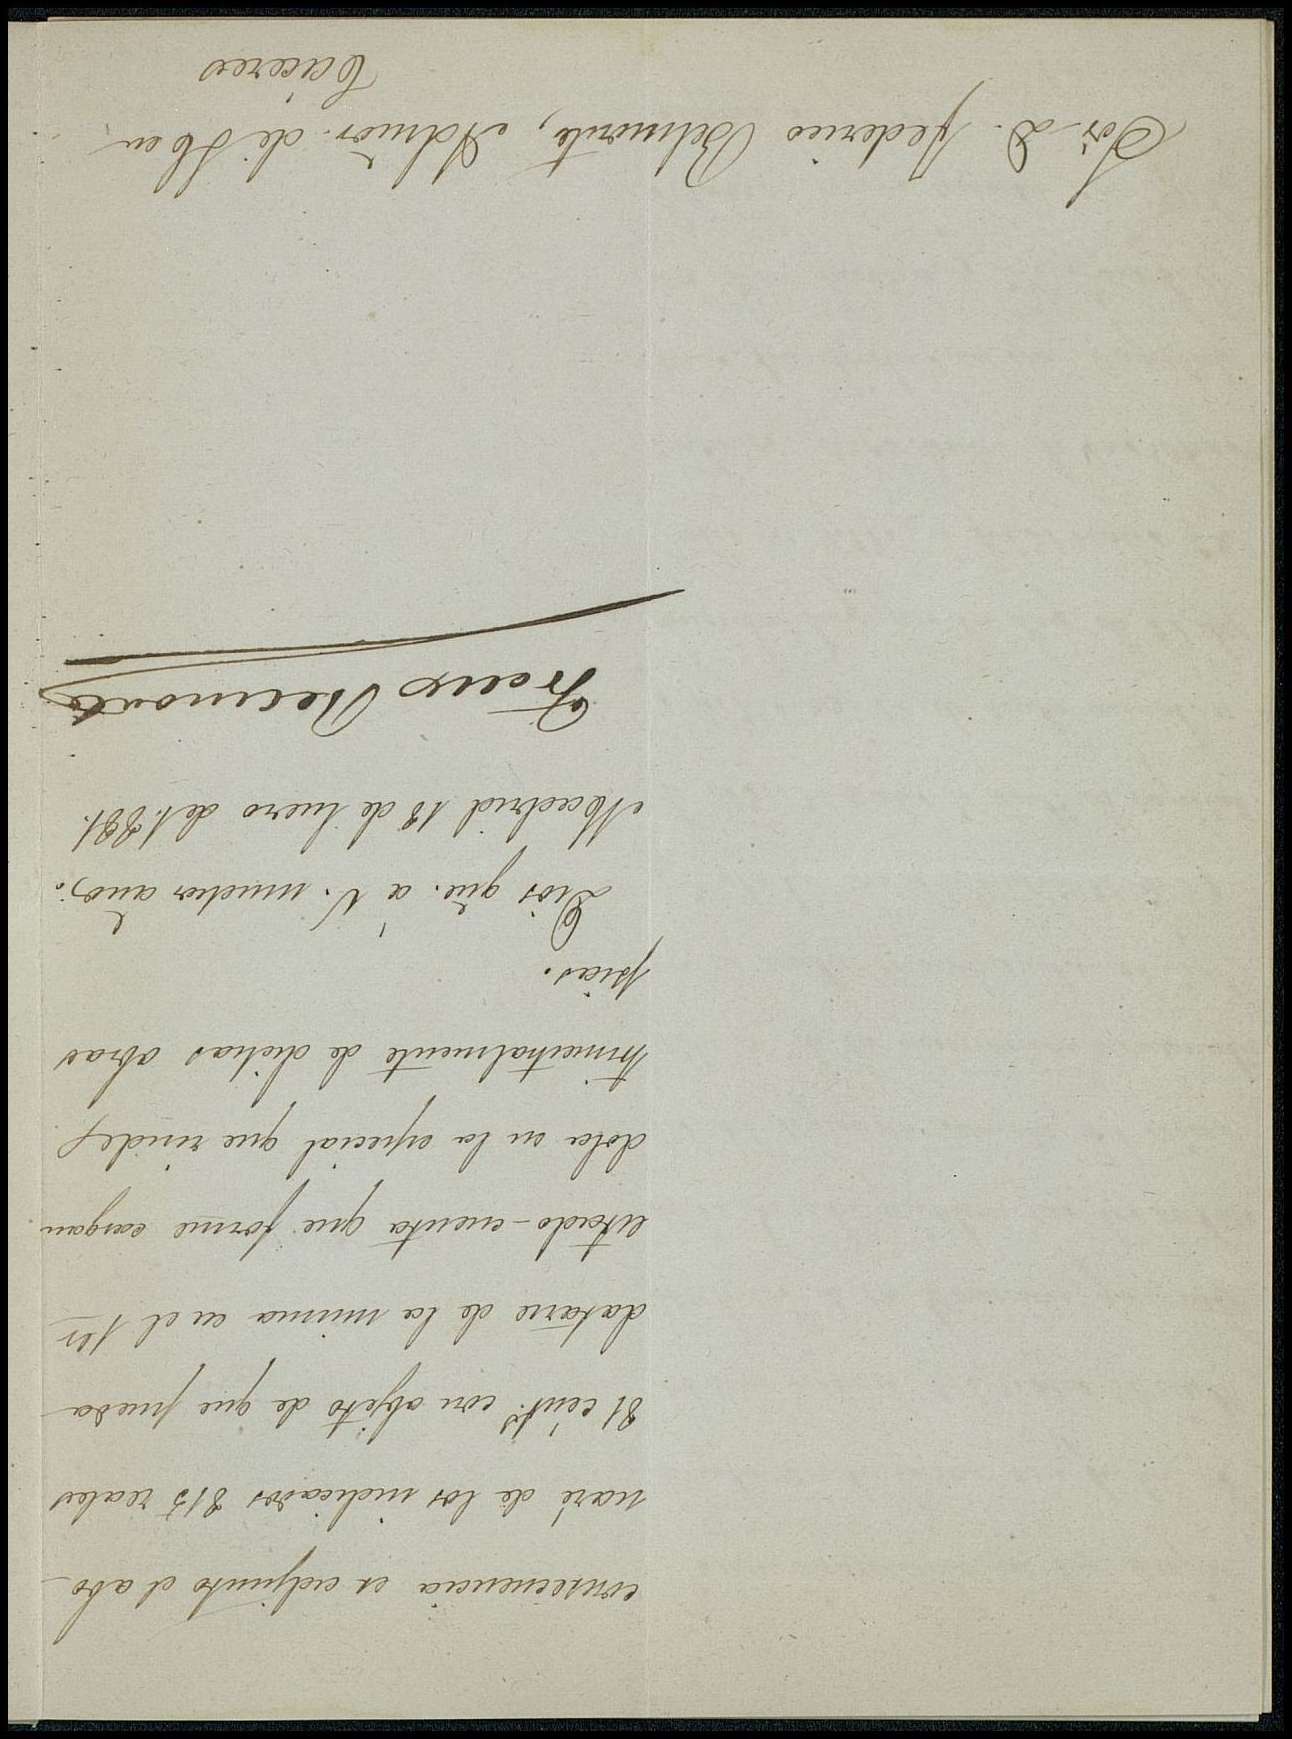 consecuencia es adjunto el abo-
naré de los indicados 815 reales
81 cént.s con objeto de que pueda
datarse de la misma en el 1er
estado-cuenta que forme cargan
dola en la especial que rinde
trimestralmente de dichas obras
pias.
Dios gũe. á V. muchos años.
Madrid 18 de Enero de 1.881.
Belmonte
Sõr. D. Federico Belmonte, Admõr. de H en
Cáceres